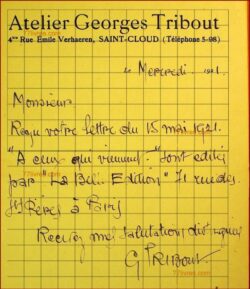 Atelier Georges Tribout
4ter Rue Émile Verhaeren, SAINT-CLOUD (Téléphone 5-08)
le Mercredi. 1921.
Monsieur
Reçu votre lettre du 15 mai 1921.
"A ceux qui viennent" sont édités
par "La Belle Edition" 71 rue des
Sts Pères à Paris
Recevez mes salutations distinguées
G TRIBOUT.